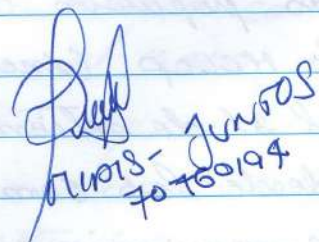 MIDIS - JUNTOS
70760194